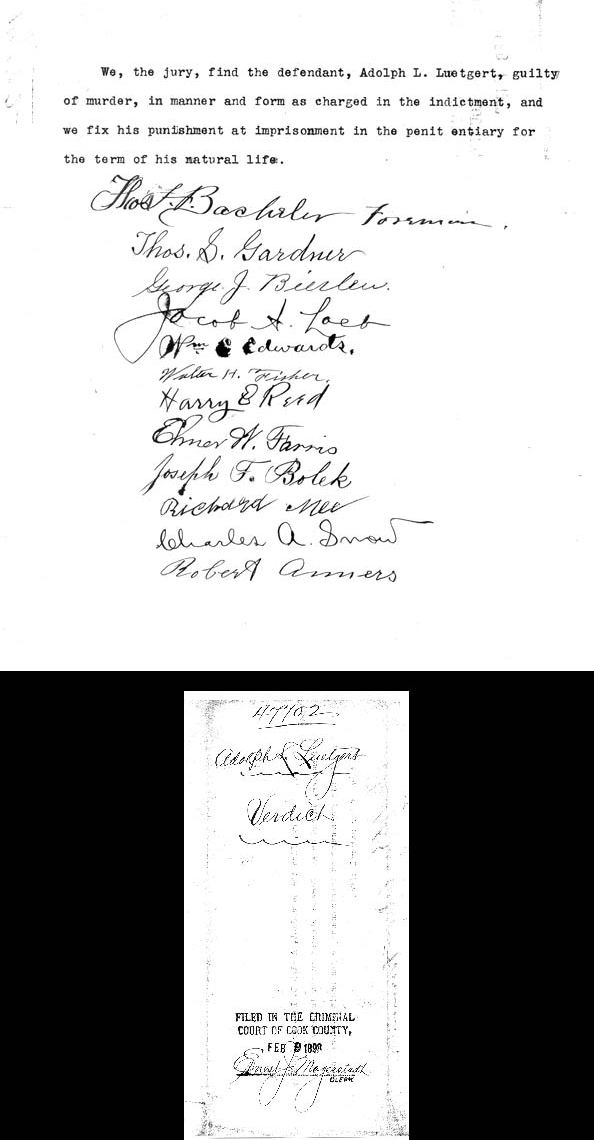 We, the jury, find the defendant, Adolph L. Luetgert, guilty
of murder, in manner and form as charged in the indictment, and
we fix his punishment at imprisonment in the penit entiary for
the term of his natural life.
Foreman.
Thos. S. Gardner
George J.
Jacob A. Loeb
Wm C Edwards.
Walter H. Fisher.
Harry E Reed
Elmer W. Farris
Joseph F. Bolek
Richard Mee
Charles A. Snow
Robert Anners
Adolph L Luetgert
Verdict
FILED IN THE CRIMINAL
COURT OF COOK COUNTY,
FEB 9 1898
CLERK